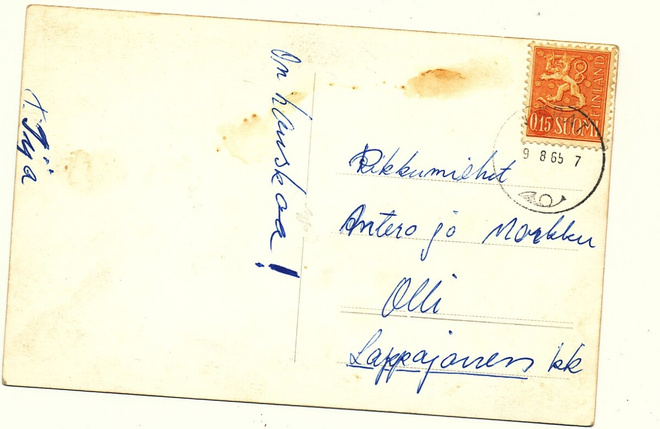 On hauskaa!
T. Irja
0,15 SUOMI
FINLAND
9 8 65 7
Pikkumiehet
Antero ja Markku
Olli
Lappajärven kk